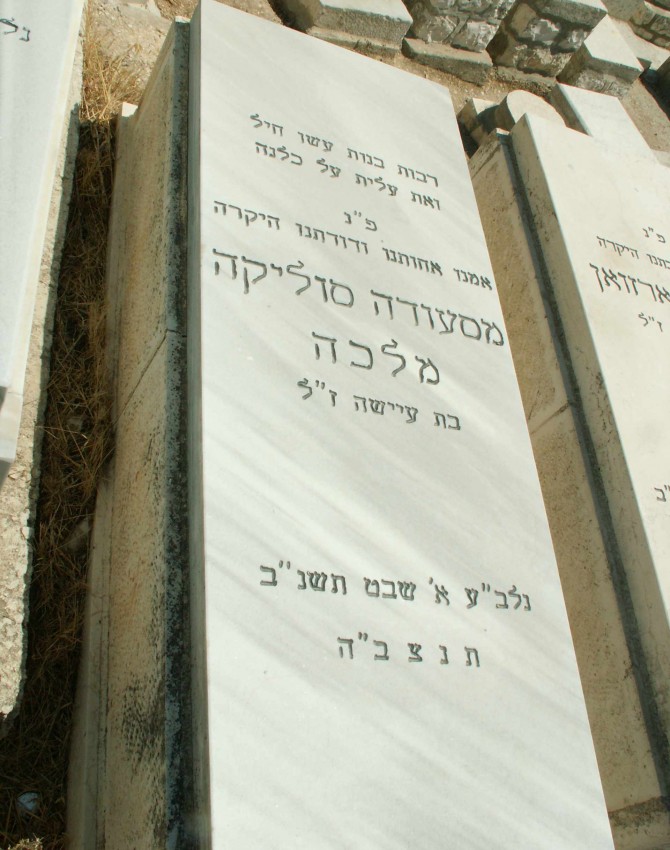 רבות בנות עשו חיל
ואת עלית על כלנה
פ"נ
אמנו אחותנו ודודתנו היקרה
מסעודה סוליקה
מלכה
בת עיישה ז"ל
נלב"ע א' שבט תשנ"ב
ת נ צ ב"ה
פ"נ
היקרה
ז"ל